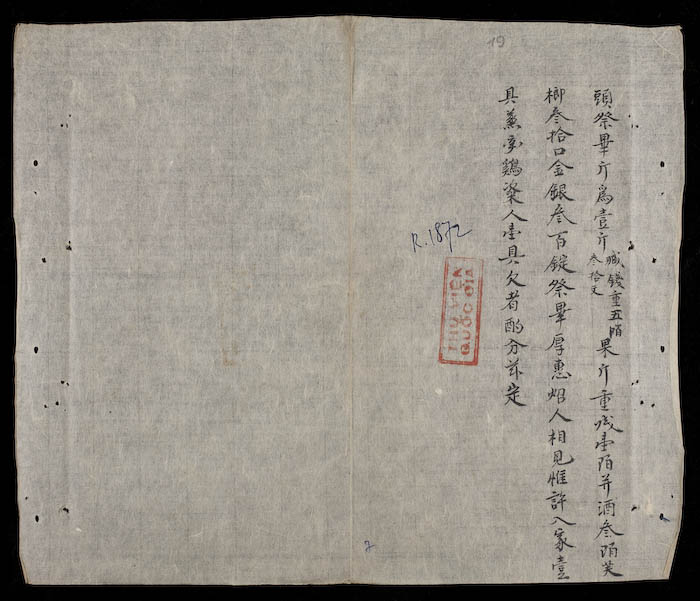 19
頭祭畢斤爲壹斤
錢重五陌
叁拾文
果斤重壹陌并酒叁陌芙
榔叁拾口金銀叁百錠祭畢厚惠人相見惟許入家壹
具蒸鷄粢人壹具欠者酌分茲定
R.1872
THƯ VIỆN
QUỐC GIA
2